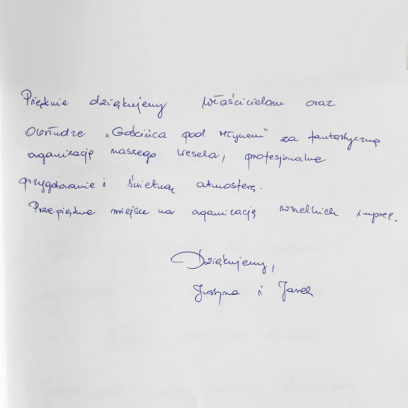 Pięknie dziękujemy Właścicielom oraz
Obsłudze "Gościńca pod Młynem" za fantastyczną
organizację naszego Wesela, profesjonalne
przygotowanie i świetną atmosferę.
Przepiękne miejsce na organizację wszelkich imprez.
Dziękujemy,
Justyna i Jarek